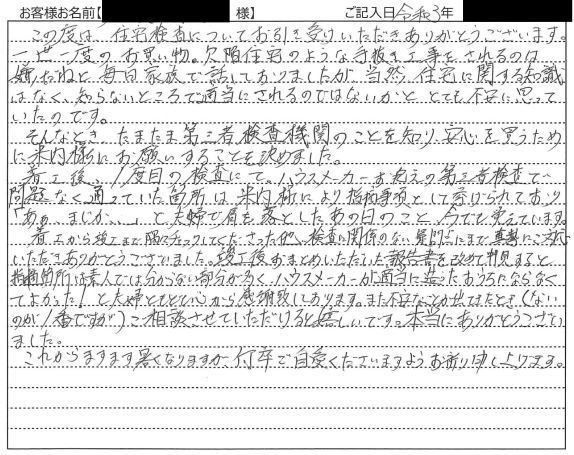 お客様お名前【 様】 ご記入日 令和3年
この度は、住宅検査についてお引き受けいただきありがとうございます。
一世一度のお買い物。欠陥住宅のような手抜き工事をされるのは
嫌だねと毎日家族で話しておりましたが、当然、住宅に関する知識
はなく、知らないところで適当にされるのではないかと、とても不安に思って
いたのです。
そんなとき、たまたま第三者検査機関のことを知り、安心を買うため
に米内様にお願いすることを決めました。
着工後、1度目の検査にて。ハウスメーカーお抱えの第三者検査で
問題なく通っていた箇所は、米内様により指摘事項として挙げられており
「あぁ、まじか、、」と夫婦で肩を落としたあの日のこと、今でも覚えています。
着工から竣工まで隅々チェックしてくださった他、検査に関係のない質問にまで、真摯にご対応
いただきありがとうございました。竣工後おまとめいただいた報告書を改めて拝見すると
指摘箇所は素人では分からない部分が多く、ハウスメーカーが適当に造ったおうちにならなく
てよかった!と夫婦ともども心から感謝致しております。また不安なことが出てきたとき(ない
のが1番ですが)ご相談させていただけると嬉しいです。本当にありがとうござい
ました。
これからますます暑くなりますが、何卒ご自愛くださいますようお祈り申し上げます。